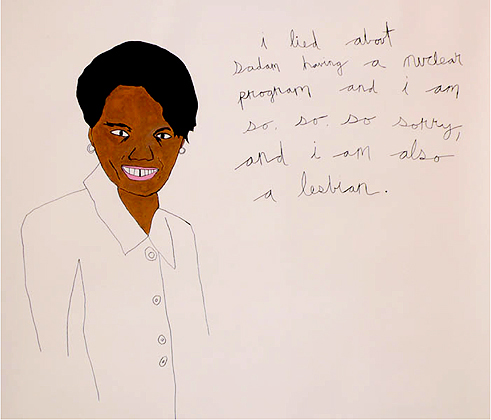 i lied about
Sadam having a nuclear
program and i am
so. so. so sorry,
and i am also
a lesbian.